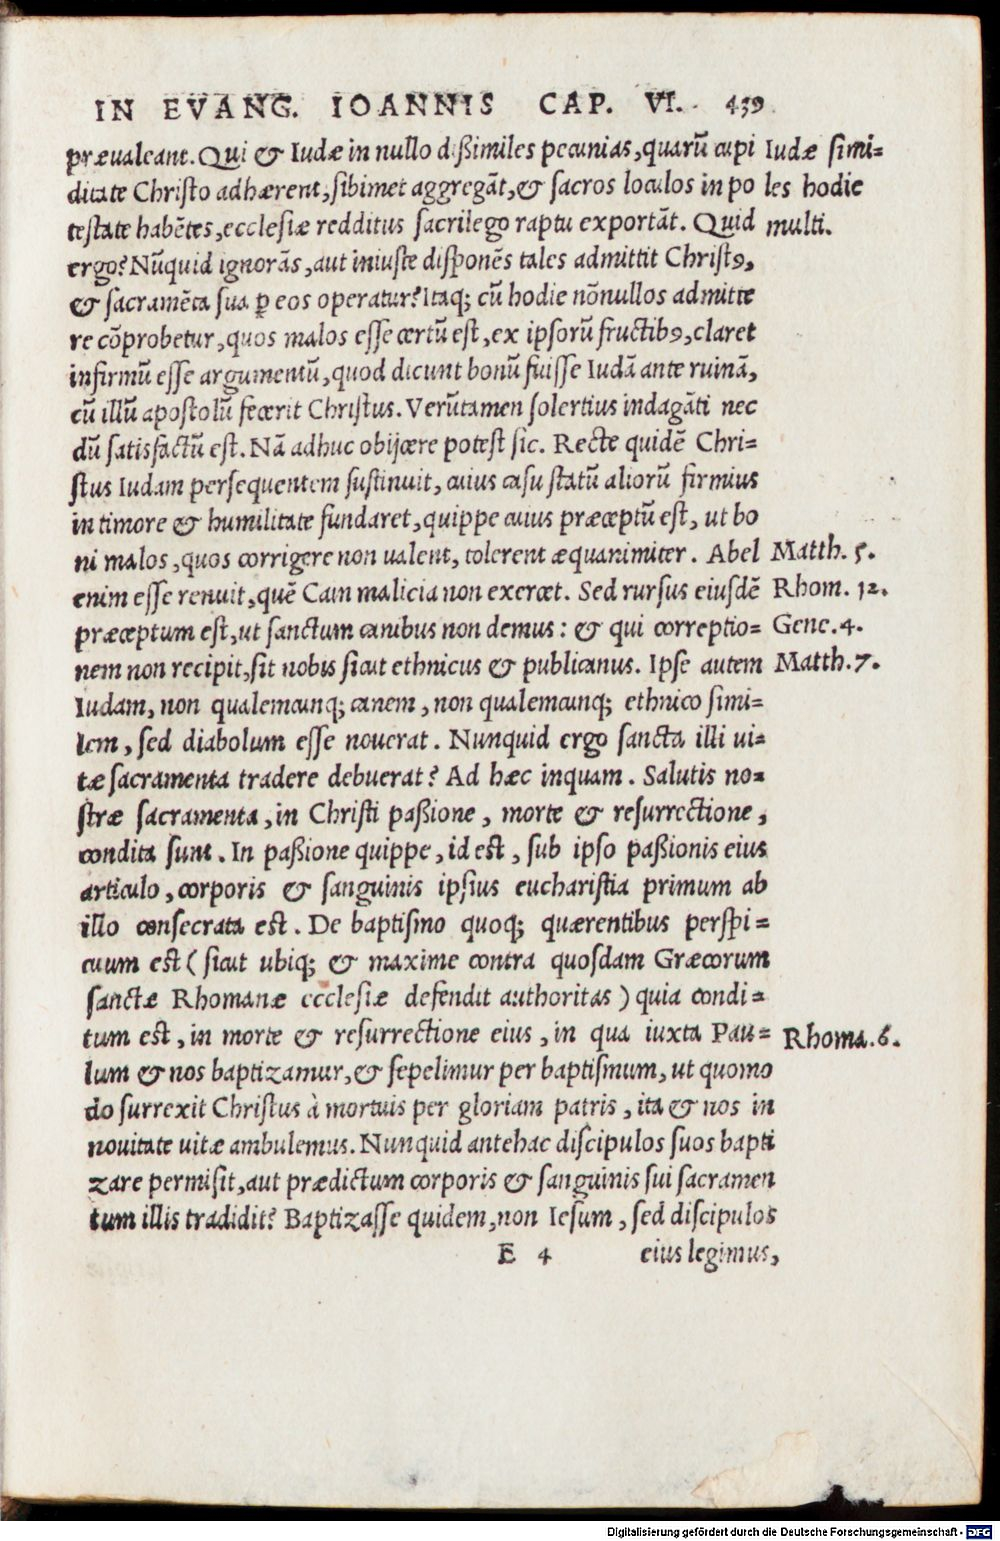 IN EVANG. IOANNIS CAP. VI. 439
præualeant. Qui & Iudæ in nullo dißimiles pecunias, quarū cupi
ditate Christo adhærent, sibimet aggregāt, & sacros loculos in po
testate habētes, ecclesiæ redditus sacrilego raptu exportāt. Quid
ergo? Nūquid ignorās, aut iniuste disponēs tales admittit Christꝰ,
& sacramēta sua ꝑ eos operatur? Itaq; cū hodie nōnullos admitte
re cōprobetur, quos malos esse certū est, ex ipsorū fructibꝰ, claret
infirmū esse argumentū, quod dicunt bonū fuisse Iudā ante ruinā,
cū illū apostolū fecerit Christus. Verūtamen solertius indagāti nec
dū satisfactū est. Nā adhuc obijcere potest sic. Recte quidē Chri=
stus Iudam persequentem sustinuit, cuius casu statū aliorū firmius
in timore & humilitate fundaret, quippe cuius præceptū est, ut bo
ni malos, quos corrigere non ualent, tolerent æquanimiter. Abel
enim esse renuit, quē Cain malicia non exercet. Sed rursus eiusdē
præceptum est, ut sanctum canibus non demus: & qui correptio=
nem non recipit, sit nobis sicut ethnicus & publicanus. Ipse autem
Iudam, non qualemcunq; canem, non qualemcunq; ethnico simi=
lem, sed diabolum esse nouerat. Nunquid ergo sancta illi ui=
tæ sacramenta tradere debuerat? Ad hæc inquam. Salutis no=
stræ sacramenta, in Christi paßione, morte & resurrectione,
condita sunt. In paßione quippe, id est, sub ipso paßionis eius
articulo, corporis & sanguinis ipsius eucharistia primum ab
illo consecrata est. De baptismo quoq; quærentibus perspi=
cuum est (sicut ubiq; & maxime contra quosdam Græcorum
sanctæ Rhomanæ ecclesiæ defendit authoritas) quia condi=
tum est, in morte & resurrectione eius, in qua iuxta Pau=
lum & nos baptizamur, & sepelimur per baptismum, ut quomo
do surrexit Christus à mortuis per gloriam patris, ita & nos in
nouitate uitæ ambulemus. Nunquid antehac discipulos suos bapti
zare permisit, aut prædictum corporis & sanguinis sui sacramen
tum illis tradidit? Baptizasse quidem, non Iesum, sed discipulos
E 4 eius legimus,
Iudæ simi=
les hodie
multi.
Matth. 5.
Rhom. 12.
Gene. 4.
Matth. 7.
Rhoma. 6.
Digitalisierung gefördert durch die Deutsche Forschungsgemeinschaft - DFG